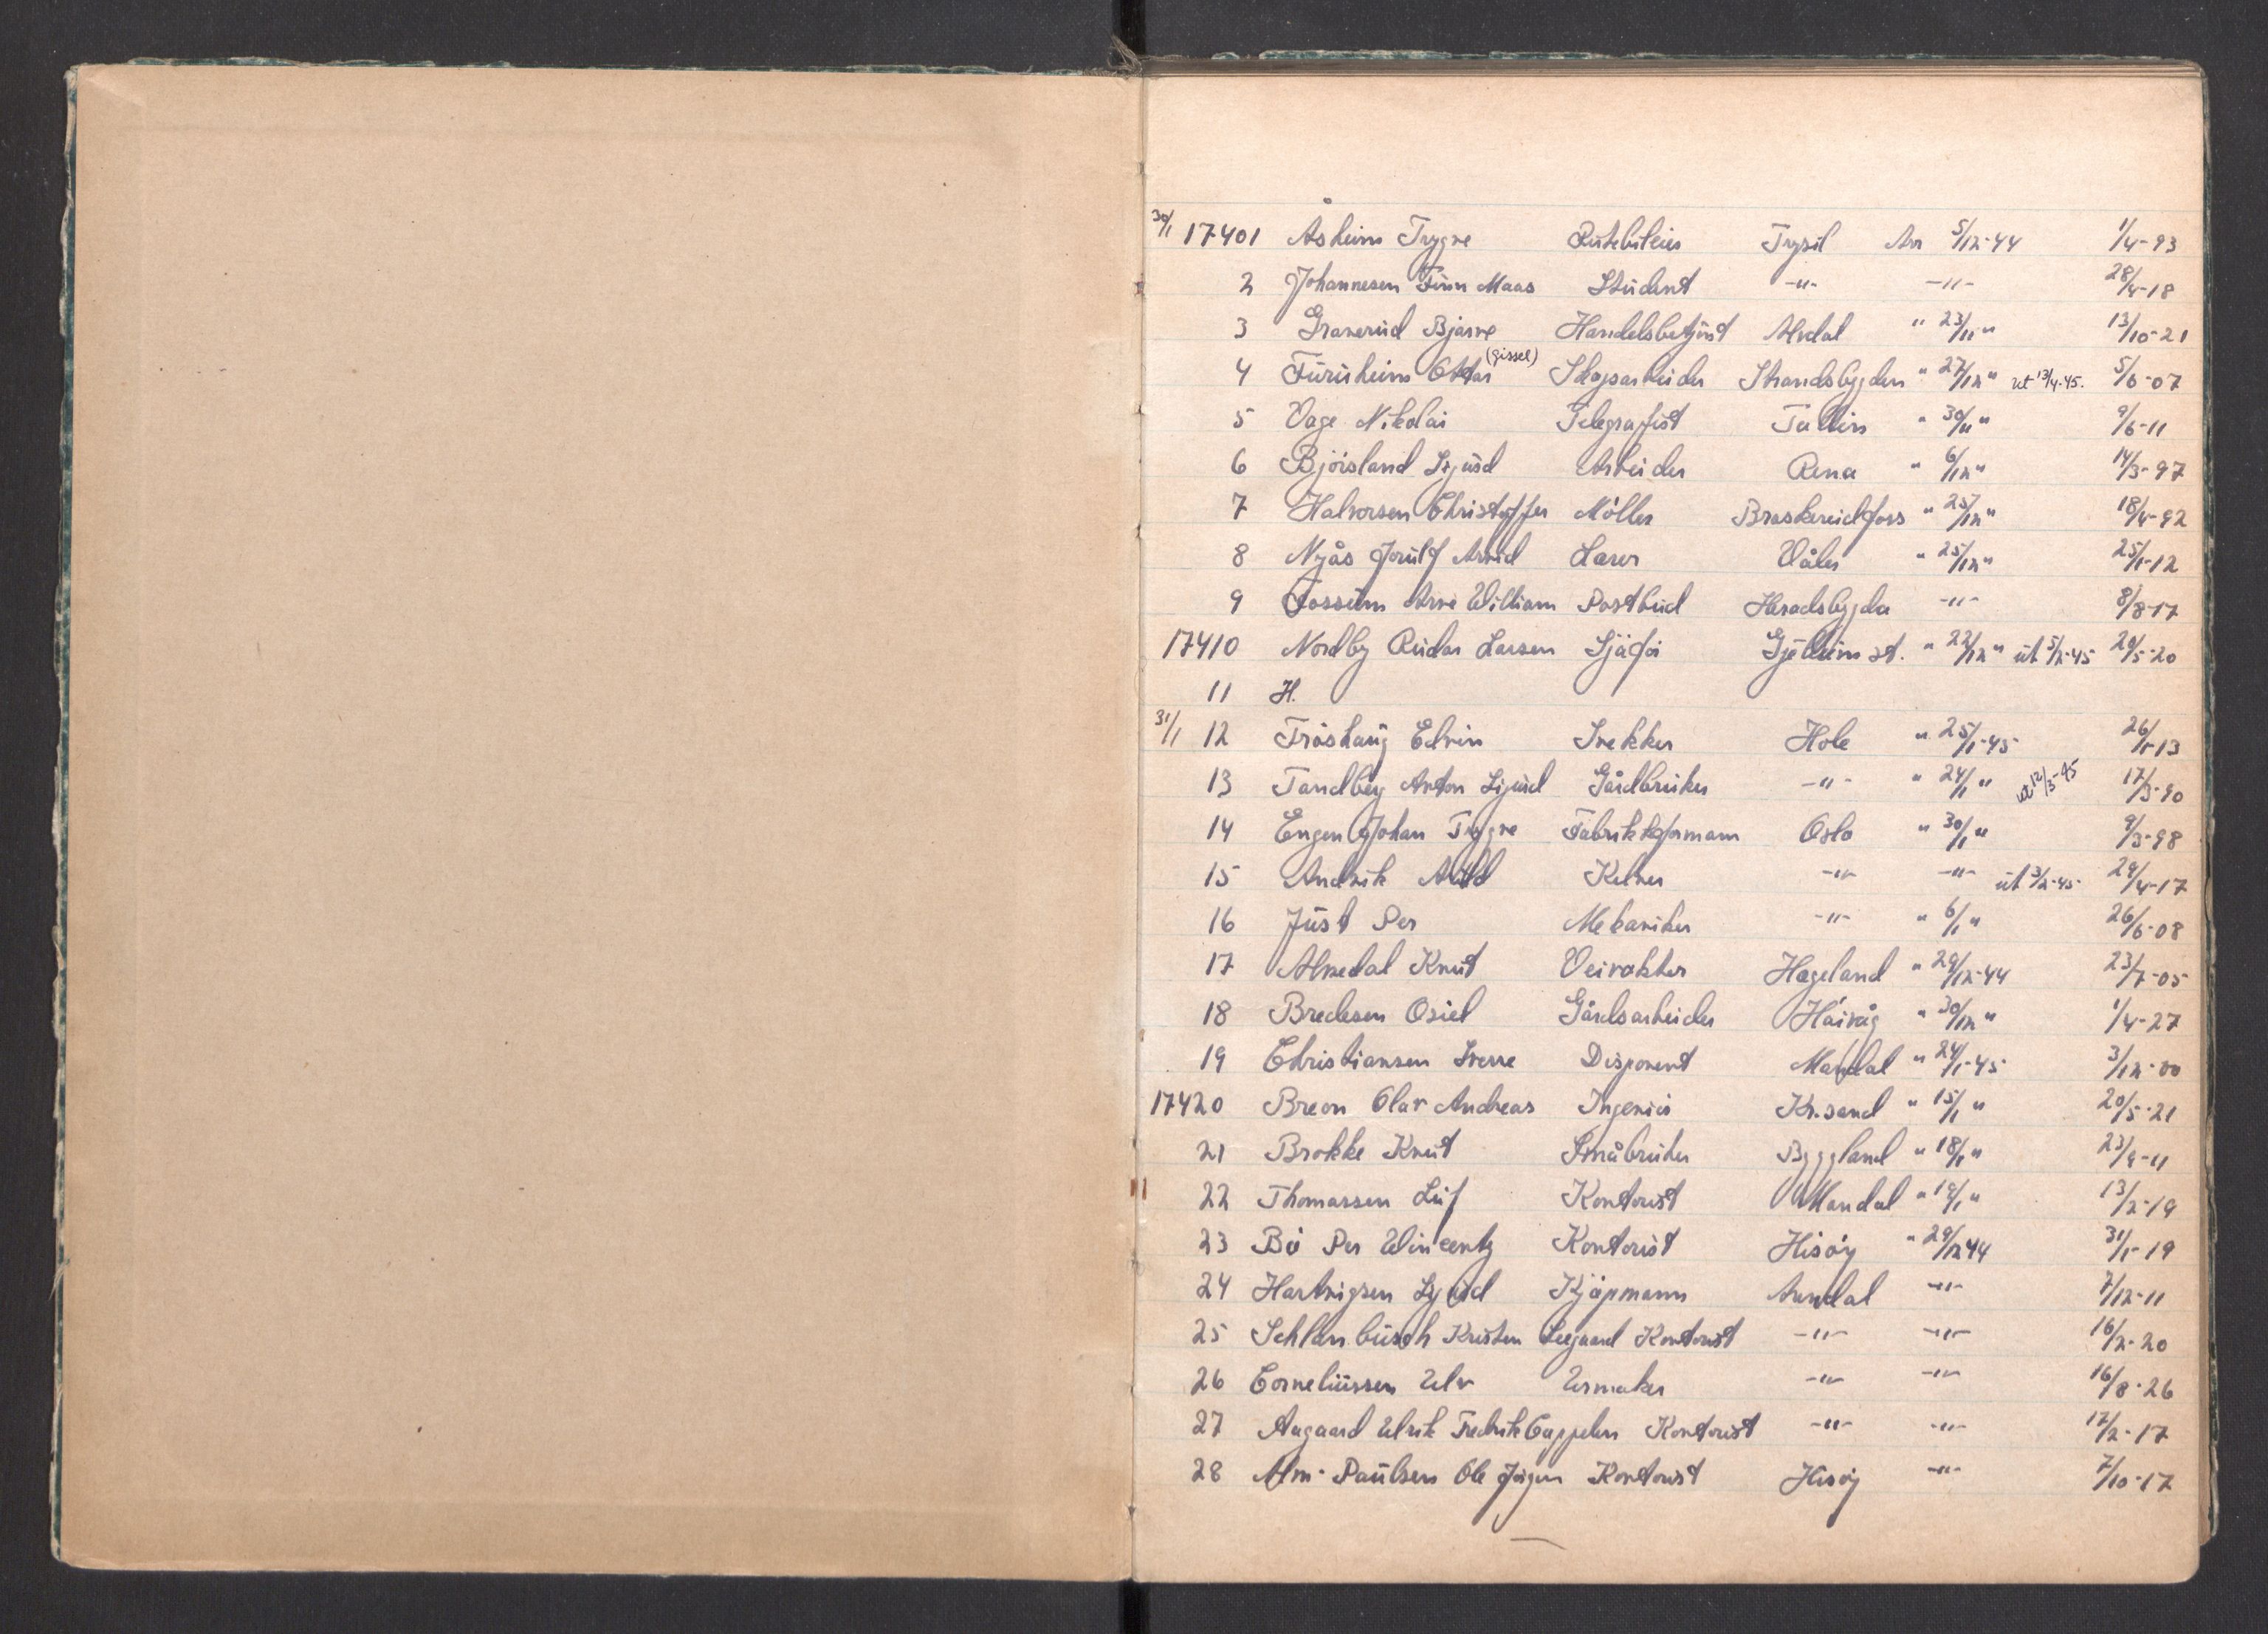 30/1 17401 Åsheim Trygve Rutebileier Trysil Arr 5/12-44 1/4-93
2 Johannesen Finn Maas Student -"- -"- 28/4-18
3 Granerud Bjarne Handelsbetjent Alvdal " 23/11 " 13/10-21
4 Furuheim Ottar (gissel) Skogsarbeider Strandsbygden " 27/12 " ut 13/4-45. 5/6-07
5 Vage Nikolai Telegrafist Tallin " 30/11 " 9/6-11
6 Bjórsland Sigurd Arbeider Rena " 6/12 " 14/3-97
7 Halvorsen Christoffer Möller Braskereidfoss " 25/12 " 18/4-92
8 Nyås Jorulf Arvid Lærer Våler " 25/12 " 25/1-12
9 Fossum Arne William Postbud Heradsbygda -"- 8/8-17
17410 Nordby Reidar Larsen Sjåfør " 22/12 " ut 5/2-45 20/5-20
11 H.
31/1 12 Tröshaug Edvin Snekker Hole " 25/1-45 26/1-13
13 Tandberg Anton Sigurd Gårdbruker -"- " 24/1 " ut 12/3-45 17/3-90
14 Engen Johan Trygve Fabrikkformann Oslo " 30/1 " 9/3-98
15 Andvik Kelner -"- -"- ut 3/2-45. 29/4-17
16 Just Per Mekaniker -"- " 6/1 " 26/6-08
17 Almedal Knut Veivokter Hægeland " 29/12-44 23/7-05
18 Bredesen Osiel Gårdsarbeider Hóivåg " 30/12 " 1/4-27
19 Christiansen Sverre Disponent Mandal " 24/1-45 3/12-00
17420 Breon Olav Andreas Ingeniør Kr.sand " 15/1 " 20/5-21
21 Brokke Knut Småbruker Byggland " 18/1 " 23/9-11
22 Thomassen Leif Kontorist Mandal " 19/1 " 13/2-19
23 Bó Per Wincentz Kontorist Hisóy " 29/12 44 31/1-19
24 Hartvigsen Sigurd Kjöpmann Arendal -"- 7/12-11
25 Schlanbusch Kristen Leegaard Kontorist -"- -"- 16/2-20
26 Corneliussen Ulv Urmaker -"- -"- 16/8-26
27 Aagaard Ulrik Fredrik Cappelen Kontorist -"- -"- 17/2-17
28 Alm-Paulsen Ole Jörgen Kontorist Hisöy -"- 7/10-17